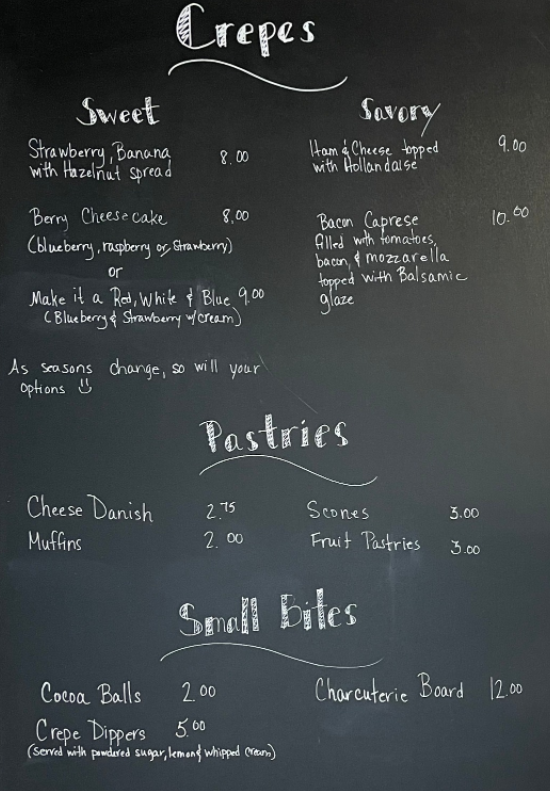 Crepes
Sweet
Strawberry, Banana
with Hazelnut spread
8.00
Berry Cheesecake 8.00
(blueberry, raspberry or Strawberry)
or
Make it a Red, White & Blue 9.00
(Blueberry & Strawberry w/cream)
As seasons change, so will your
options
Savory
Ham & Cheese topped
with Hollandaise
9.00
Bacon Caprese 10.00
filled with tomatoes,
bacon, & mozzarella
topped with Balsamic
glaze
Pastries
Cheese Danish 2.75
Muffins 2.00
Scones 3.00
Fruit Pastries 3.00
Small Bites
Cocoa Balls 2.00
Crepe Dippers 5.00
(Served with powdered sugar, lemon & whipped cream)
Charcuterie Board 12.00